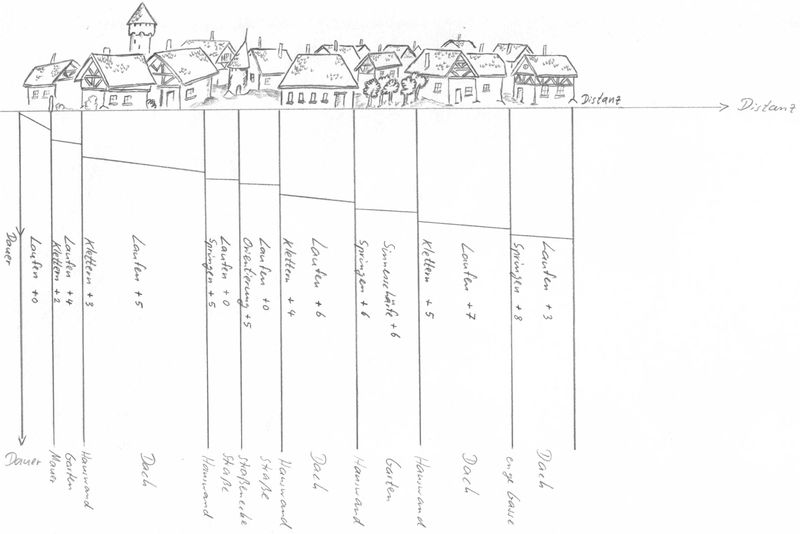 Distanz
Distanz
Dauer
Laufen +0
Klettern +2
Laufen +4
Klettern +3
Laufen +5
Springen +5
Laufen +0
Orientierung +5
Laufen +0
Klettern +4
Laufen +6
Springen +6
Sinnenschärfe +6
Klettern +5
Laufen +7
Springen +8
Laufen +3
Dauer
Mauer
Garten
Hauswand
Dach
Hauswand
Straße
Straßenecke
Straße
Hauswand
Dach
Hauswand
Garten
Hauswand
Dach
enge Gasse
Dach